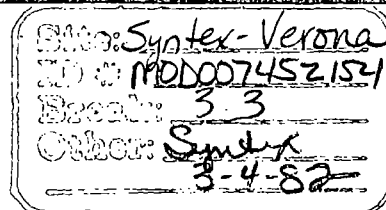 Site: Syntex-Verona
ID # MOD007452154
Break: 3.3
Other: Syntex
3-4-82